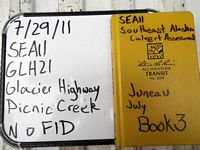 7/29/11
SEAll
GLH21
Glacier Highway
Picnic Creek
No FID
SEAll
Southeast Alaska
Culvert Assessment
Rite in the Rain
ALL-WEATHER
TRANSIT
Juneau
July
Book 3